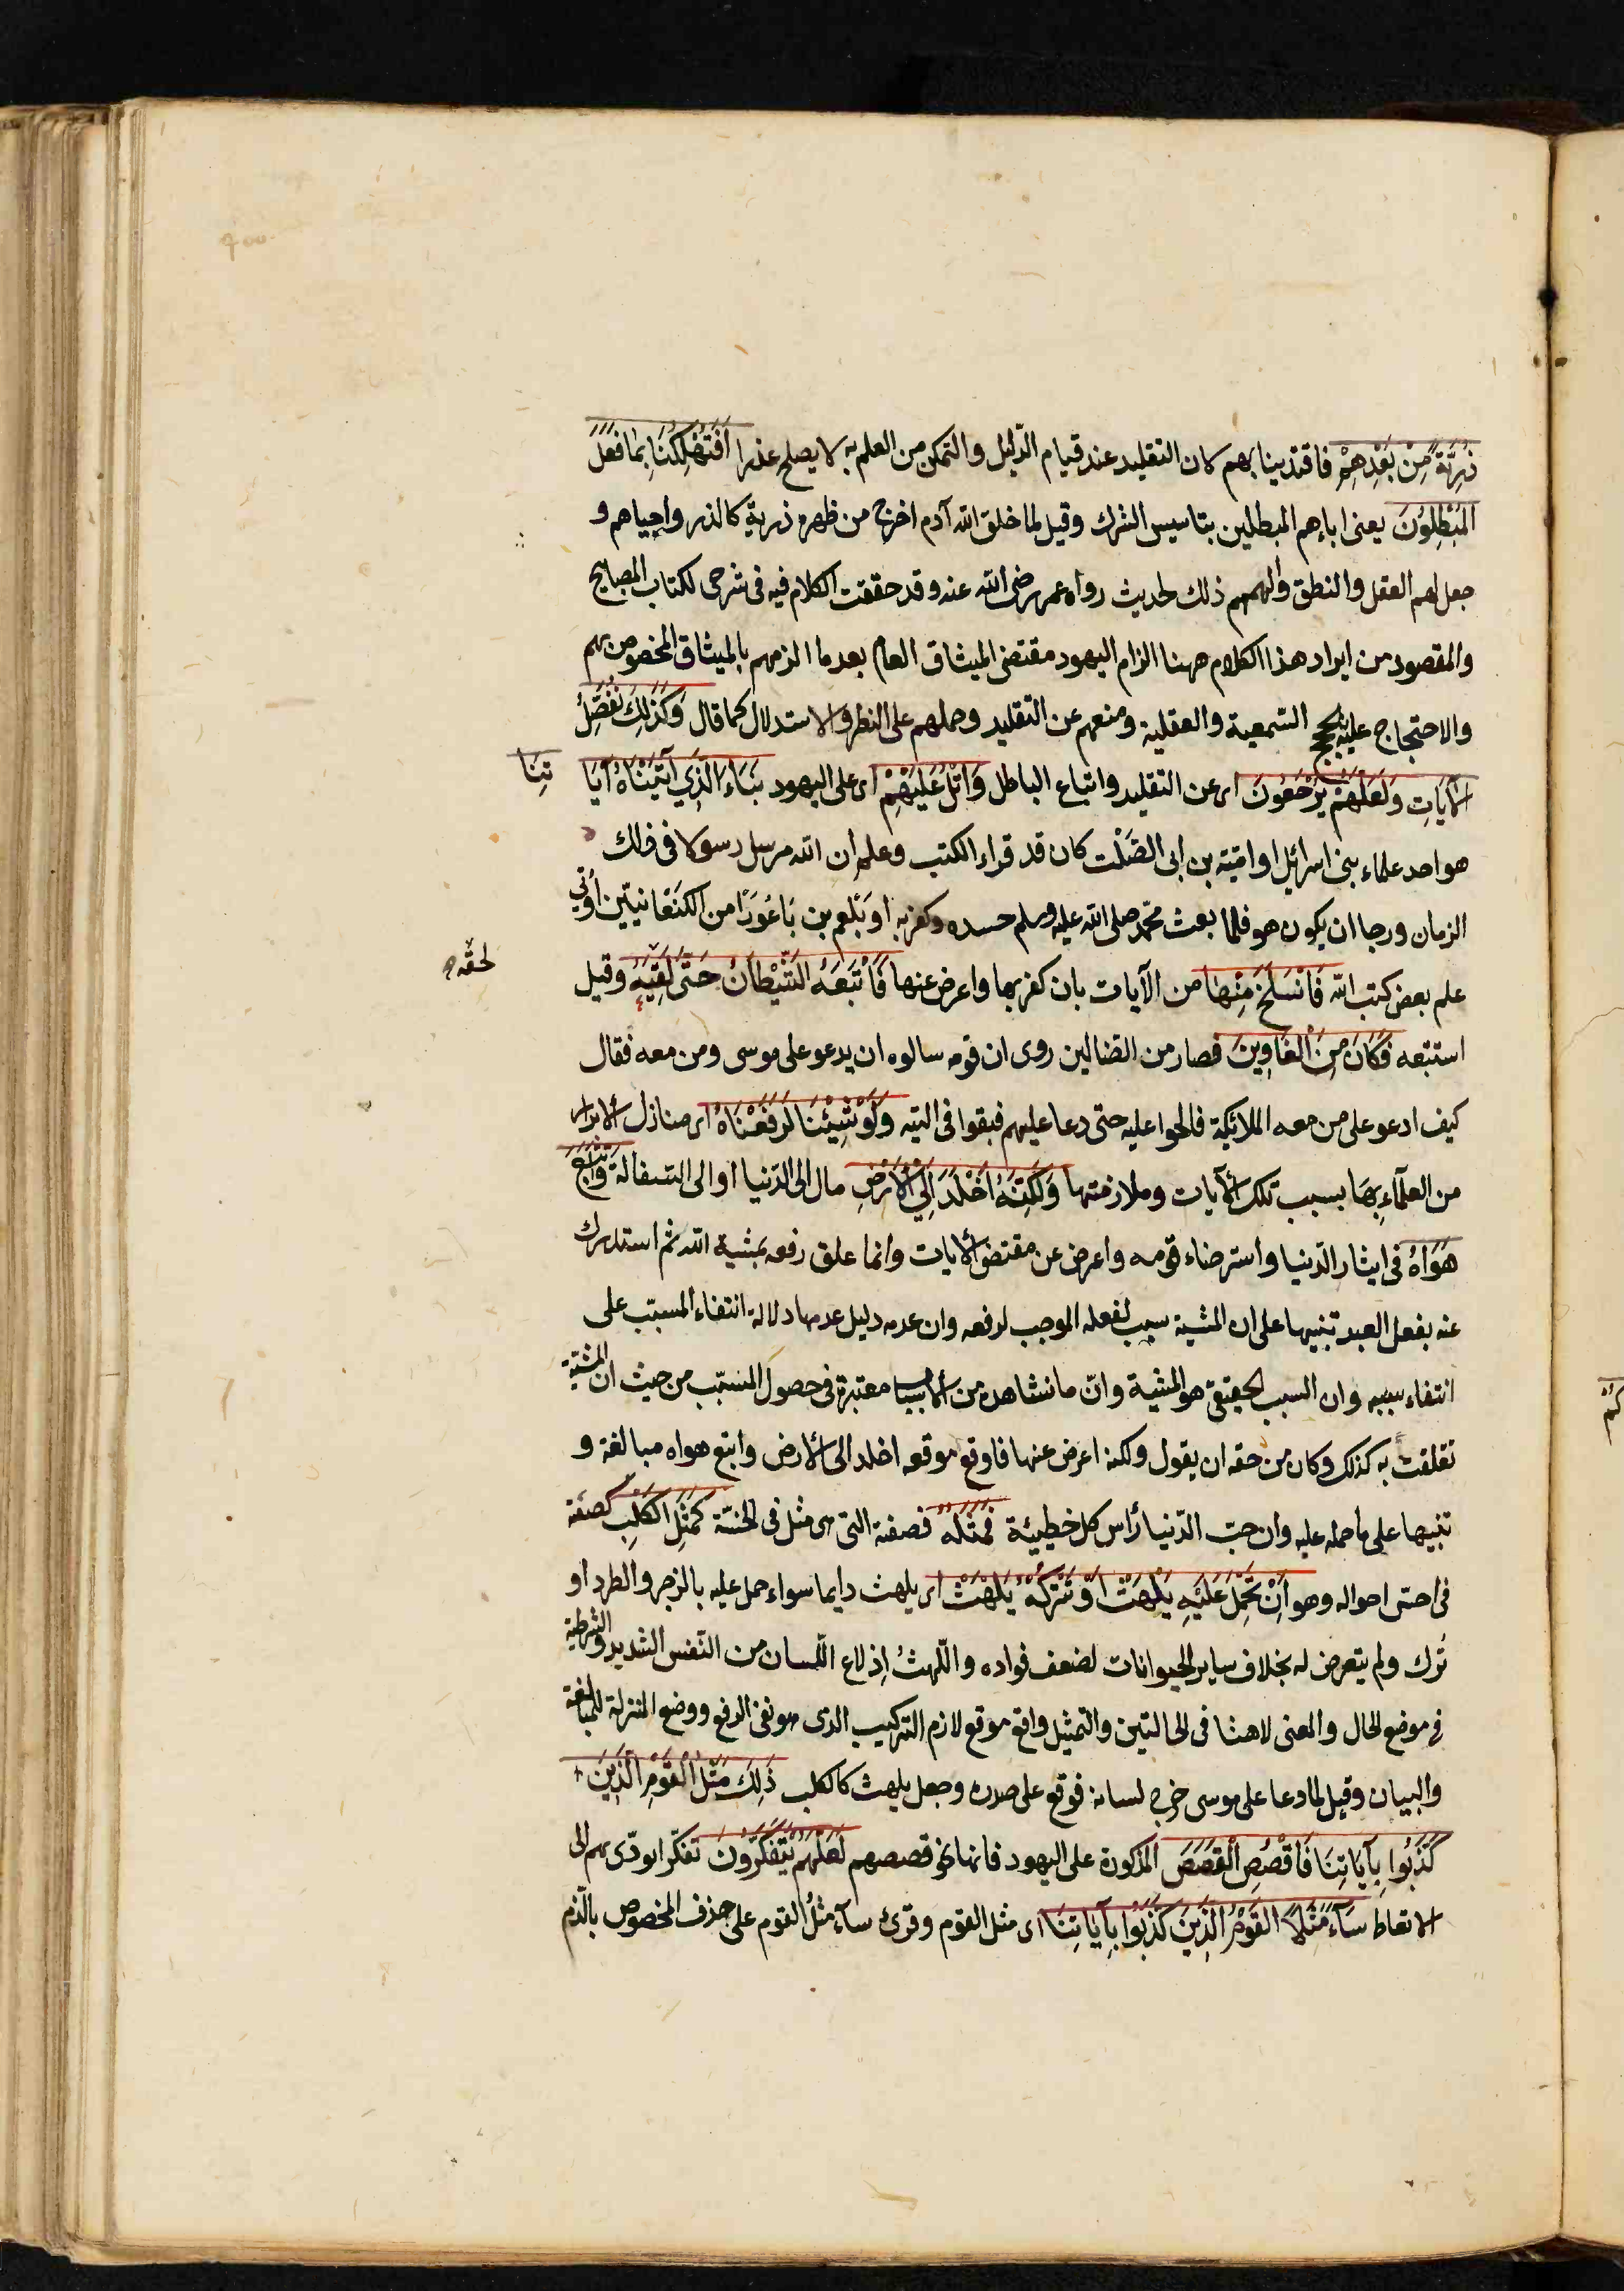 ذُرِّيَّةً مِنْ بَعْدِهِمْ فاقتدينا بهم لان التقليد عند قيام الدّليل والتمكن من العلم به لا يصلح عذرا اَفَتُهْلِكُنَا بِمَا فَعَلَ
الْمُبْطِلُونَ يعنى اباءهم المبطلين بتاسيس الشرك وقيل لما خلق الله آدم اخرج من ظهره ذرية كالذر واحياهم و
جعل لهم العقل والنطق والهمهم ذلك لحديث رواه عمر رضى الله عنه وقد حققت الكلام فيه فى شرحى لكتاب المصابيح
والمقصود من ايراد هذا الكلام ههنا الزام اليهود مقتضى الميثاق العام بعد ما الزمهم بالميثاق المخصوص بهم
والاحتجاج عليهم بالحجج السّمعية والعقلية ومنعهم عن التقليد وحملهم على النظر والاستدلال كما قال وَكَذَلِكَ نُفَصِّلُ
الْآيَاتِ وَلَعَلَّهُمْ يَرْجِعُونَ اى عن التقليد واتباع الباطل وَاتْلُ عَلَيْهِمْ اى على اليهود نَبَاءَ الَّذِي آتَيْنَاهُ آيَا تِنَا
هو احد علماء بنى اسرائيل او اميّة بن ابى الصَّلْت كان قد قراء الكتب وعلم ان الله مرسل رسولا فى ذلك
الزمان ورجا ان يكون هو فلما بعث محمّد صلى الله عليه وسلم حسده وكفر به او بَلْعَم بن بَاعُورَا من الكَنْعَانيّين اُوتي
علم بعض كتب الله فَانْسَلَخَ مِنْهَا من الآيات بان كفر بها واعرض عنها فَاَتْبَعَهُ الشَّيْطَانُ حَتّى لَقِيَهُ وقيل
لحقه
استتبعه فَكَانَ مِنَ الْغَاوِينَ فصار من الضالين روى ان قومه سالوه ان يدعو على موسى ومن معه فقال
كيف ادعو على من معه الملائكة فالحوا عليه حتى دعا عليهم فبقوا فى التيه وَلَوْ شِئْنَا لَرَفَعْنَاهُ اى منازل الابرار
من العلمآءِ بِهَا بسبب تلك الآيات وملازمتها وَلَكِنَّهُ اَخْلَدَ اِلَي الْاَرْضِ مال الى الدّنيا او الى السفالة وَاتَّبَعَ
هَوَاهُ فى ايثار الدّنيا واسترضاء قومه واعرض عن مقتضى الايات وانما علق رفعه بمشية الله ثم استدرك
عنه بفعل العبد تنبيها على ان المشية سبب لفعله الموجب لرفعه وان عدمه دليل عدمها دلالة انتفاء المسبّب على
انتفاء سببه وان السبب الحقيقى هو المشية وانّ ما نشاهده من الاسباب معتبرة فى حصول المسبّب من حيث ان المشيّة
تعلقت به كذلك وكان من حقه ان يقول ولكنه اعرض عنها فاوقع موقعه اخلد الى الارض واتبع هواه مبالغة و
تنبيها على ما حمله عليه وان حبّ الدّنيا رأس كل خطيئة فَمَثَلُهُ فصفته التى هى مثل فى الخسّة كَمَثَلِ الْكَلْبِ كصفته
فى اخسّ احواله وهو اِنْ تَحْمِلْ عَلَيْهِ يَلْهَثْ اَوْ تَتْرُكْهُ يَلْهَثْ اى يلهث دايما سواء حمل عليه بالزجر والطرد او
تُرك ولم يتعرض له بخلاف ساير الحيوانات لضعف فواده واللّهثُ اِدْلاع اللّسان من التّنفس الشديد والشرطية
فى موضع الحال والمعنى لاهثا فى الحالتين والتمثيل واقع موقع لازم التركيب الذى هو نفى الرفع ووضع المنزلة للمبالغة
والبيان وقيل لما دعا على موسى خرج لسانه فوقع على صدره وجعل يلهث كالكلب ذَلِكَ مَثَلُ الْقَوْمِ الَّذِينَ
كَذَّبُوا بِآيَاتِنَا فَاقْصُصِ الْقَصَصَ المذكورة على اليهود فانها نحو قصصهم لَعَلَّهُمْ يَتَفَكَّرُونَ تفكّرا يودّى بهم الى
الاتعاظ سَآءَ مَثَلاً الْقَوْمُ الَّذِينَ كَذَّبُوا بِآيَاتِنَا اى مثل القوم وقرئ سآءَ مثلُ القوم على حذف المخصوص بالذّم